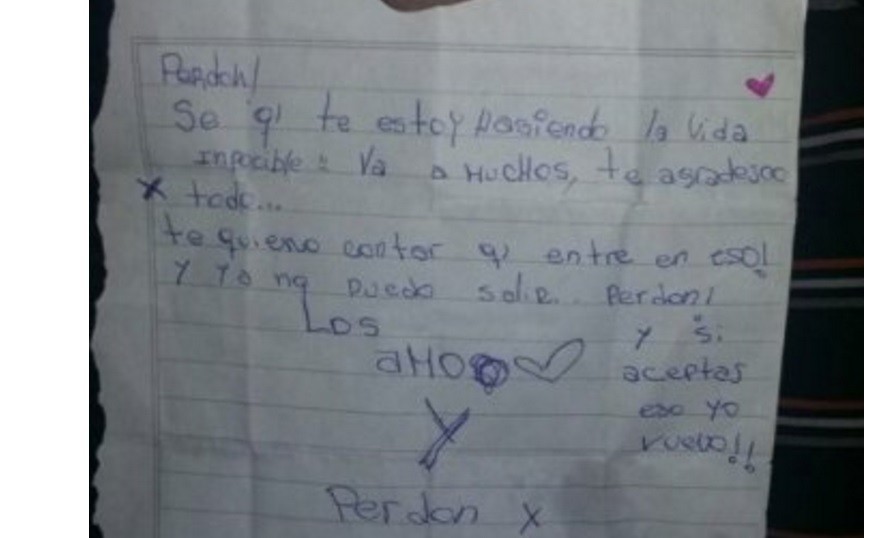 Perdon!
Se q' te estoy Hasiendo la Vida
Inpocible : Va a Muchos, te agradesco
x todo...
te quiero contar q' entre en eso!
y yo no puedo salir. Perdon!
Los
aMo
y si
aceptas
eso yo
vuelvo!!
Y
Perdon x